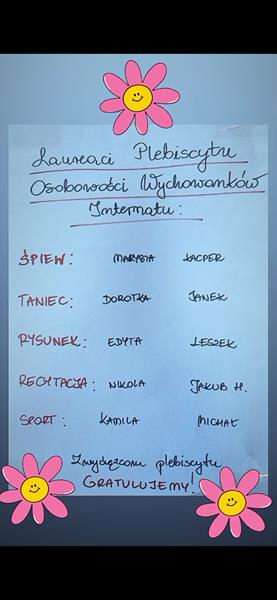 Laureaci Plebiscytu
Osobowości Wychowanków
Internatu:
ŚPIEW: MARYSIA KACPER
TANIEC: DOROTKA JANEK
RYSUNEK: EDYTA LESZEK
RECYTACJA: NIKOLA JAKUB H.
SPORT: KAMILA MICHAŁ
Zwycięzcom plebiscytu
GRATULUJEMY!